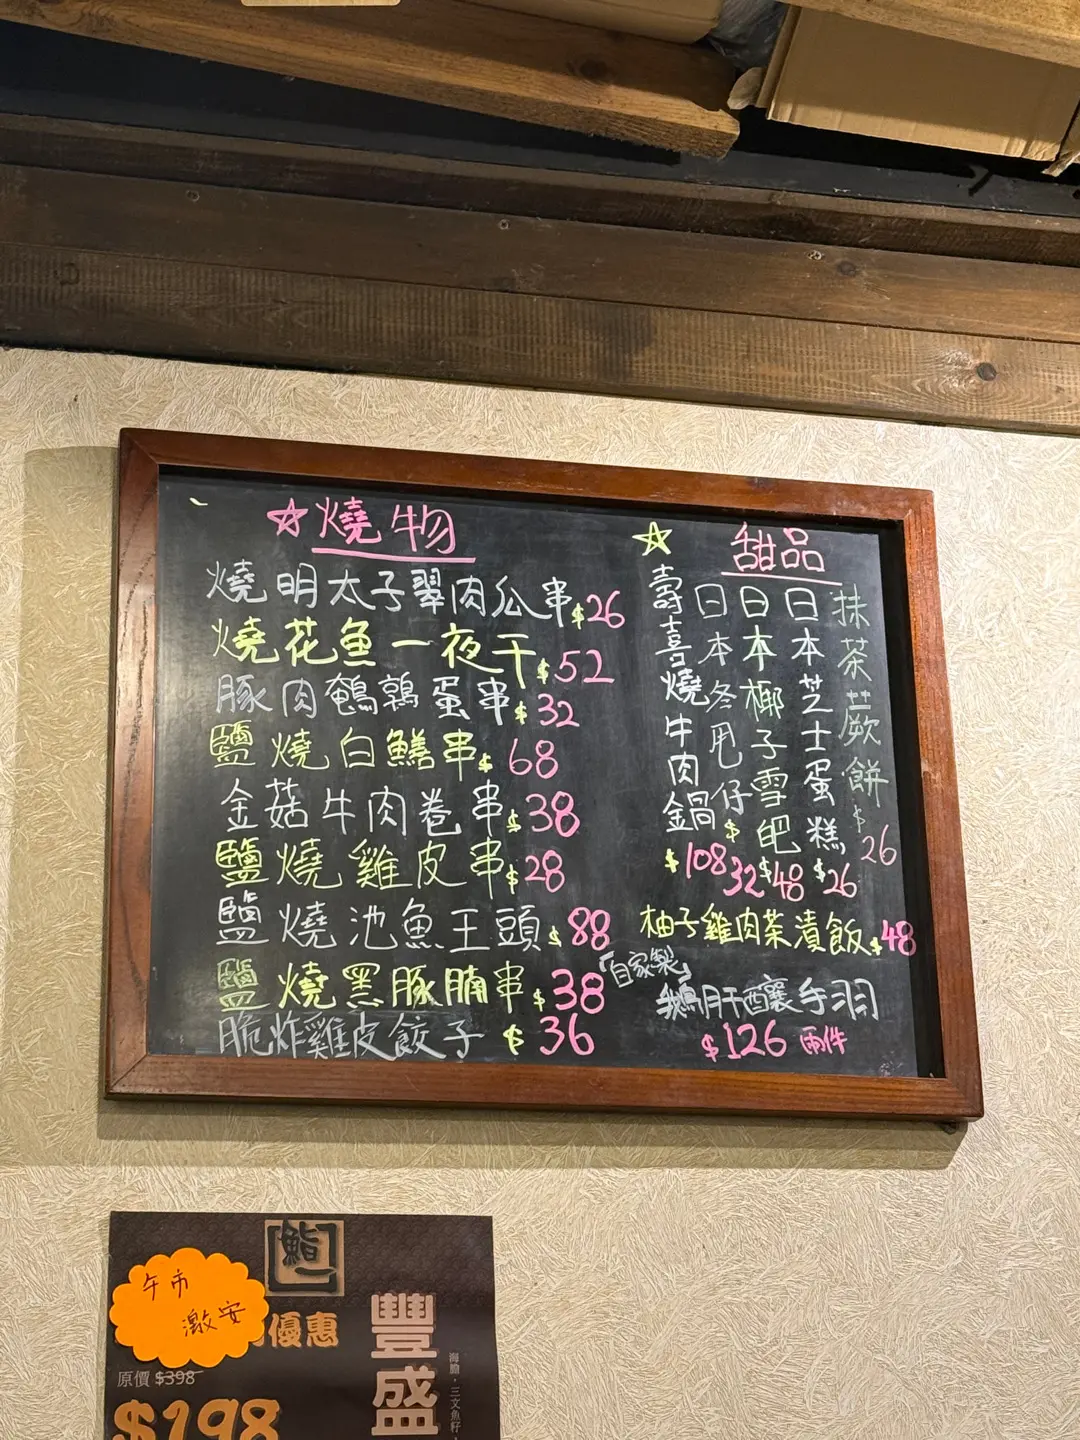 ☆燒物
燒明太子翠肉瓜串$26
燒花魚一夜干$52
豚肉鵪鶉蛋串$32
鹽燒白鱔串$68
金菇牛肉卷串$38
鹽燒雞皮串$28
鹽燒池魚王頭$88
鹽燒黑豚腩串$38
脆炸雞皮餃子$36
☆甜品
抹茶蕨餅$26
日本芝士蛋糕$26
日本椰子雪吧$48
日本冬甩仔$32
壽喜燒牛肉鍋$108
柚子雞肉茶漬飯$48
「自家製」
鵝肝釀手羽
$126 兩件
鮨一
午市
激安
優惠
原價 $398
$198
豐盛
海膽，三文魚籽，